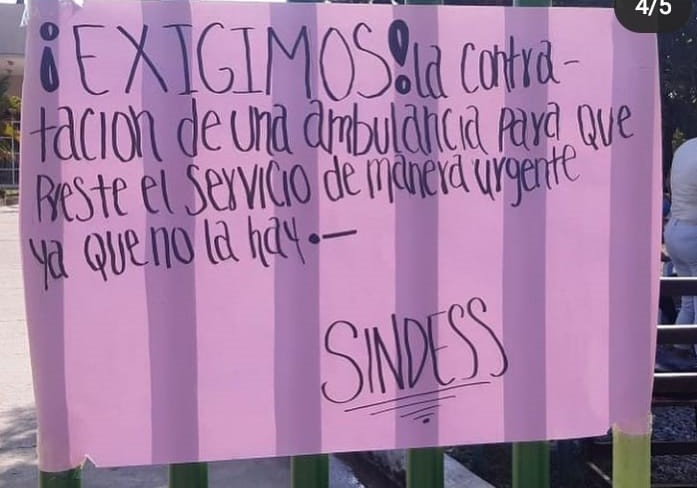 4/5
¡EXIGIMOS! la contra-
tacion de una ambulancia para que
Preste el servicio de manera urgente
ya que no la hay.—
SINDESS